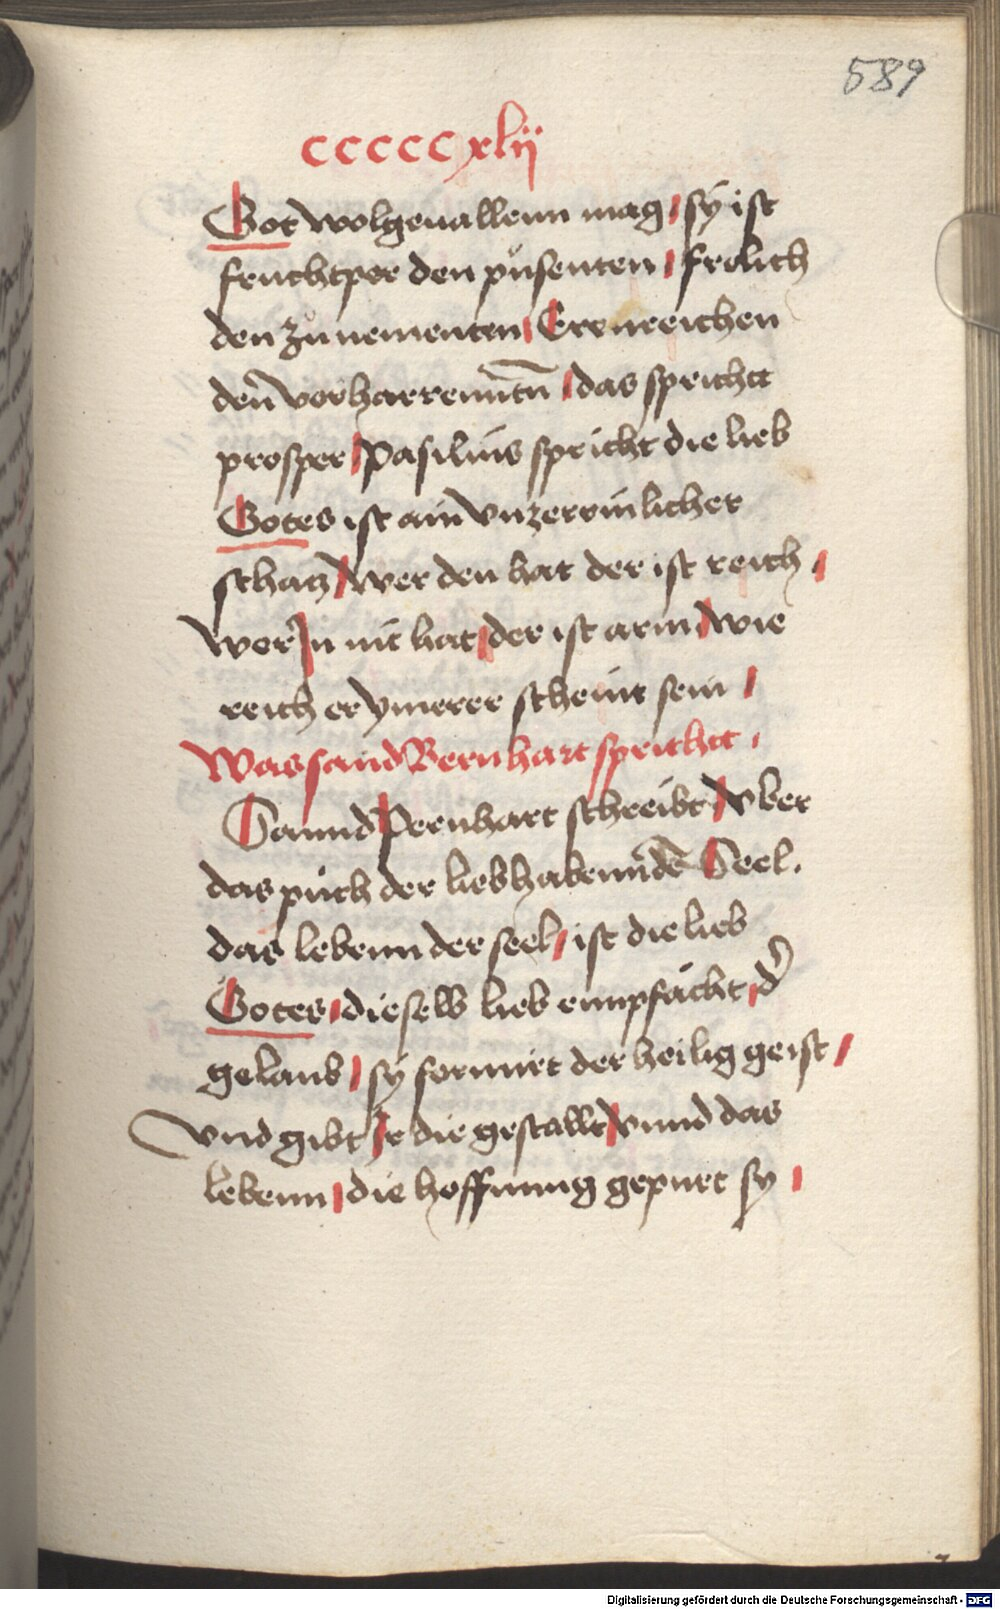 589
cccccxlij
Got wolgeuallenn mag / sÿ ist
fruchtper den pūsenten / frolich
den zūnementen / Erenreichen
deñ vorharrenntñ / das sprichtt
prosper / Pasilius spricht die lieb
Gotes ist ain vnzerrinlicher
schatz / wer den hat der ist reich /
wer In nit hat / der ist arm / wie
reich er ymerer scheint sein /
Was sand Bernhart sprichtt .
Sannd Pernhart schreibt vber
das pūch der liebhabennden̄ Seel .
das lebenn der seel / ist die lieb
Gotes / dieselb lieb empfächt / d̓
gelaub / sÿ formirt der heilig geist /
vnd gibt Ir die gestallt vnnd das
lebenn / die hoffnung gepurt sy /
Digitalisierung gefördert durch die Deutsche Forschungsgemeinschaft - DFG